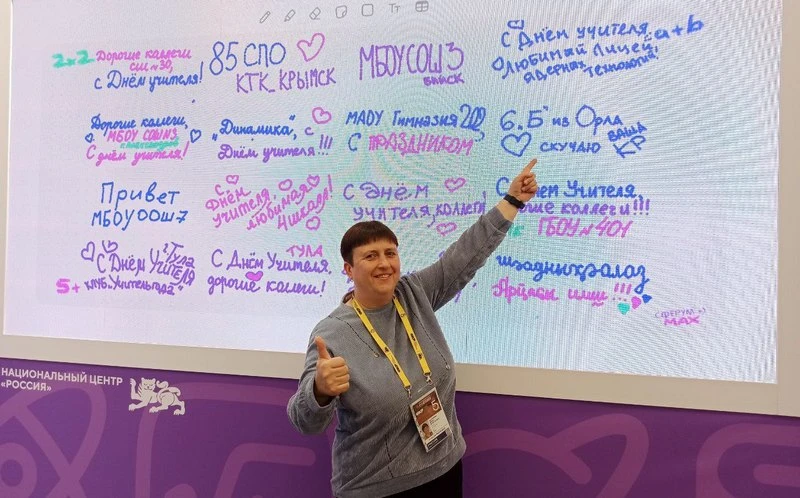 2×2 Дорогие коллеги
сш №30,
с Днём учителя!
85 СПО
КТК_КРЫМСК
МБОУ СОШ 3
БИЙСК
С Днём учителя,
любимый Лицей
ядерных технологий!
a+b
Дорогие коллеги,
МБОУ СОШ №3
С днём учителя!
„Динамика", с
Днём учителя!!!
МАОУ Гимназия 209
С ПРАЗДНИКОМ
6.Б из Орла
СКУЧАЮ
ВАША
КР
Привет
МБОУ ООШ 7
С
Днём
учителя,
любимая
4 школа!
С Днём
учителя, коллеги!
С Днем Учителя,
дорогие коллеги!!!
ГБОУ №401
С Днём Учителя
"Тула
5+ клуб "Учитель года"
ТУЛА
С Днём Учителя,
дорогие коллеги!
!!!
СФЕРУМ
MAX
НАЦИОНАЛЬНЫЙ ЦЕНТР
«РОССИЯ»
Тт
5